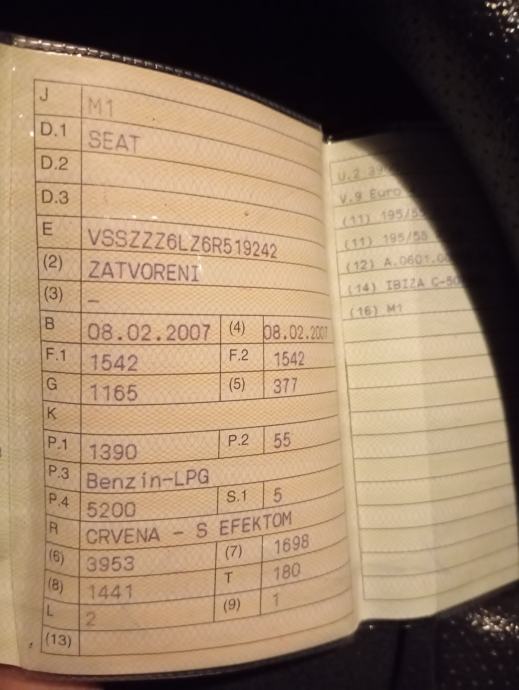 J M1
D.1 SEAT
D.2
D.3
E VSSZZZ6LZ6R519242
(2) ZATVORENI
(3) –
B 08.02.2007 (4) 08.02.2007
F.1 1542 F.2 1542
G 1165 (5) 377
K
P.1 1390 P.2 55
P.3 Benzin-LPG
P.4 5200 S.1 5
R CRVENA – S EFEKTOM
(6) 3953 (7) 1698
(8) 1441 T 180
L 2 (9) 1
(13)
U.2
V.9 Euro
(11) 195/55
(11) 195/55
(12) A.0601.
(14) IBIZA
(16) M1